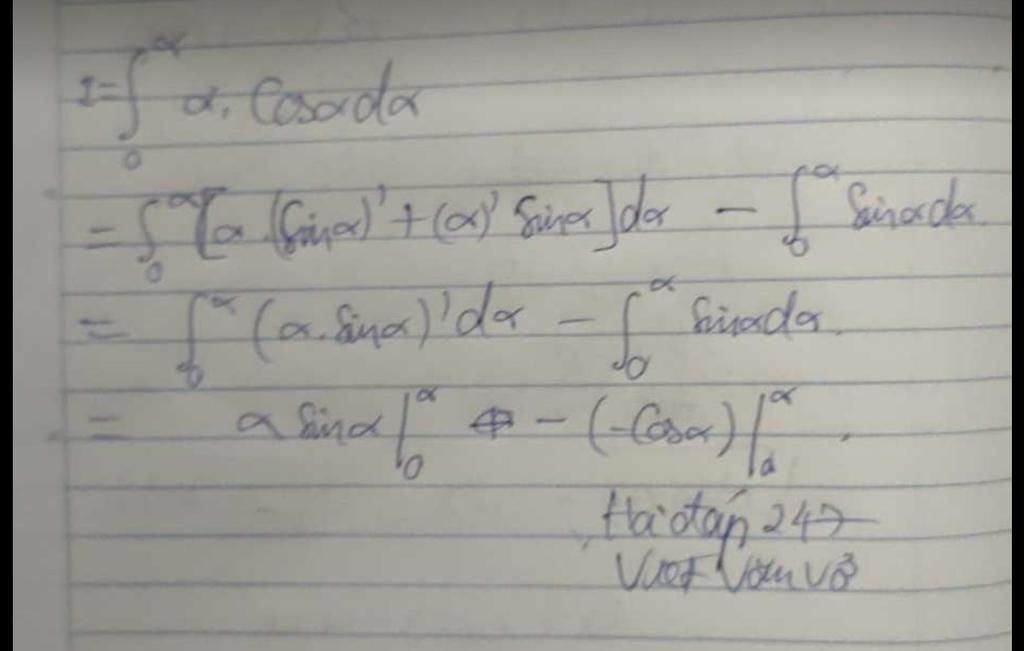 I = ∫₀^α α. Cosα dα
= ∫₀^α [α (Sinα)' + (α)' Sinα] dα − ∫₀^α Sinα dα
= ∫₀^α (α. Sinα)' dα − ∫₀^α Sinα dα.
= α Sinα |₀^α − (-Cosα) |^α .
247